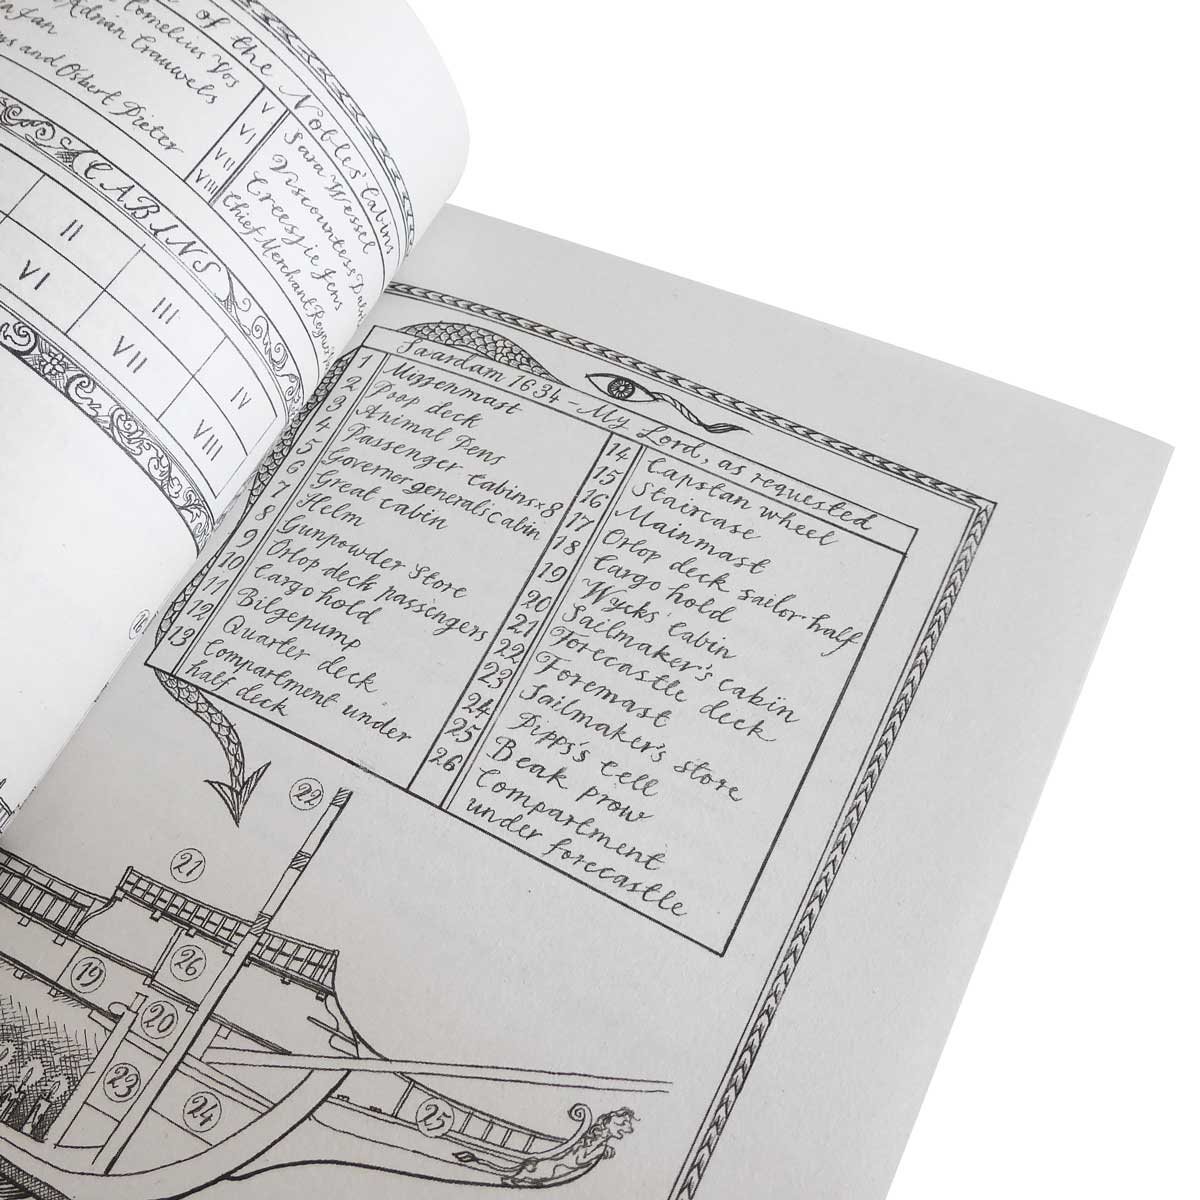 of the Nobles' Cabins
Cornelius Vos
Adrian Crauwels
Jan
and Osbert Pieter
V Sara Wessel
VI Viscountess
VII Creesjie Jens
VIII Chief Merchant
CABINS
II
III
IV
VI
VII
VIII
Saardam 1634 - My Lord, as requested
1 Mizzenmast
2 Poop deck
3 Animal Pens
4 Passenger Cabins × 8
5 Governor general's cabin
6 Great cabin
7 Helm
8 Gunpowder Store
9 Orlop deck passengers
10 Cargo hold
11 Bilgepump
12 Quarter deck
13 Compartment under
half deck
14 Capstan wheel
15 Staircase
16 Mainmast
17 Orlop deck sailor half
18 Cargo hold
19 Wycks' cabin
20 Sailmaker's cabin
21 Forecastle deck
22 Foremast
23 Sailmaker's store
24 Pipps's Cell
25 Beak prow
26 Compartment
under forecastle
22
21
26
19
20
23
24
25